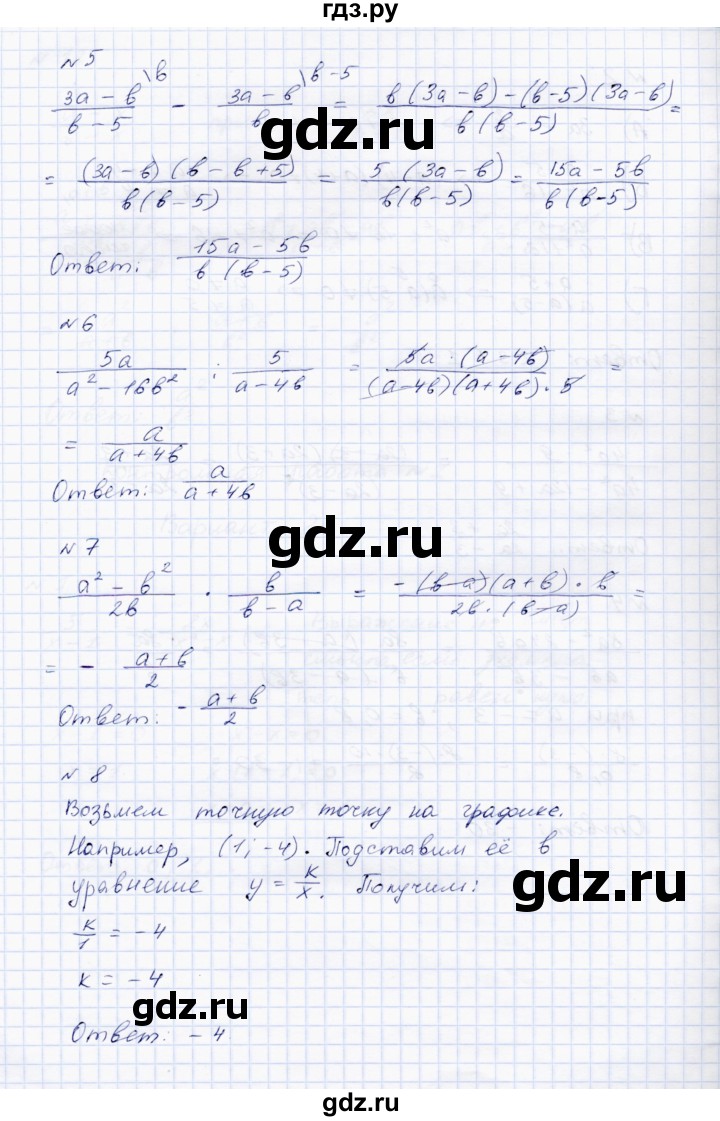 гдз.ру
№5
(3a – b)/(b – 5) \b – (3a – b)/b \b – 5 = (b(3a – b) – (b – 5)(3a – b))/(b(b – 5)) =
= ((3a – b)(b – b + 5))/(b(b – 5)) = (5(3a – b))/(b(b – 5)) = (15a – 5b)/(b(b – 5))
Ответ: (15a – 5b)/(b(b – 5))
№6
5a/(a² – 16b²) : 5/(a – 4b) = (5a · (a – 4b))/((a – 4b)(a + 4b) · 5) =
= a/(a + 4b)
Ответ: a/(a + 4b)
№7
(a² – b²)/2b · b/(b – a) = (–(b – a)(a + b) · b)/(2b · (b – a)) =
= – (a + b)/2
Ответ: – (a + b)/2
№8
Возьмем точную точку на графике.
Например, (1; –4). Подставим её в
уравнение y = k/x. Получим:
k/1 = –4
k = –4
Ответ: –4
gdz.ru
gdz.ru
gdz.ru
gdz.ru
gdz.ru
gdz.ru
гдз.ру